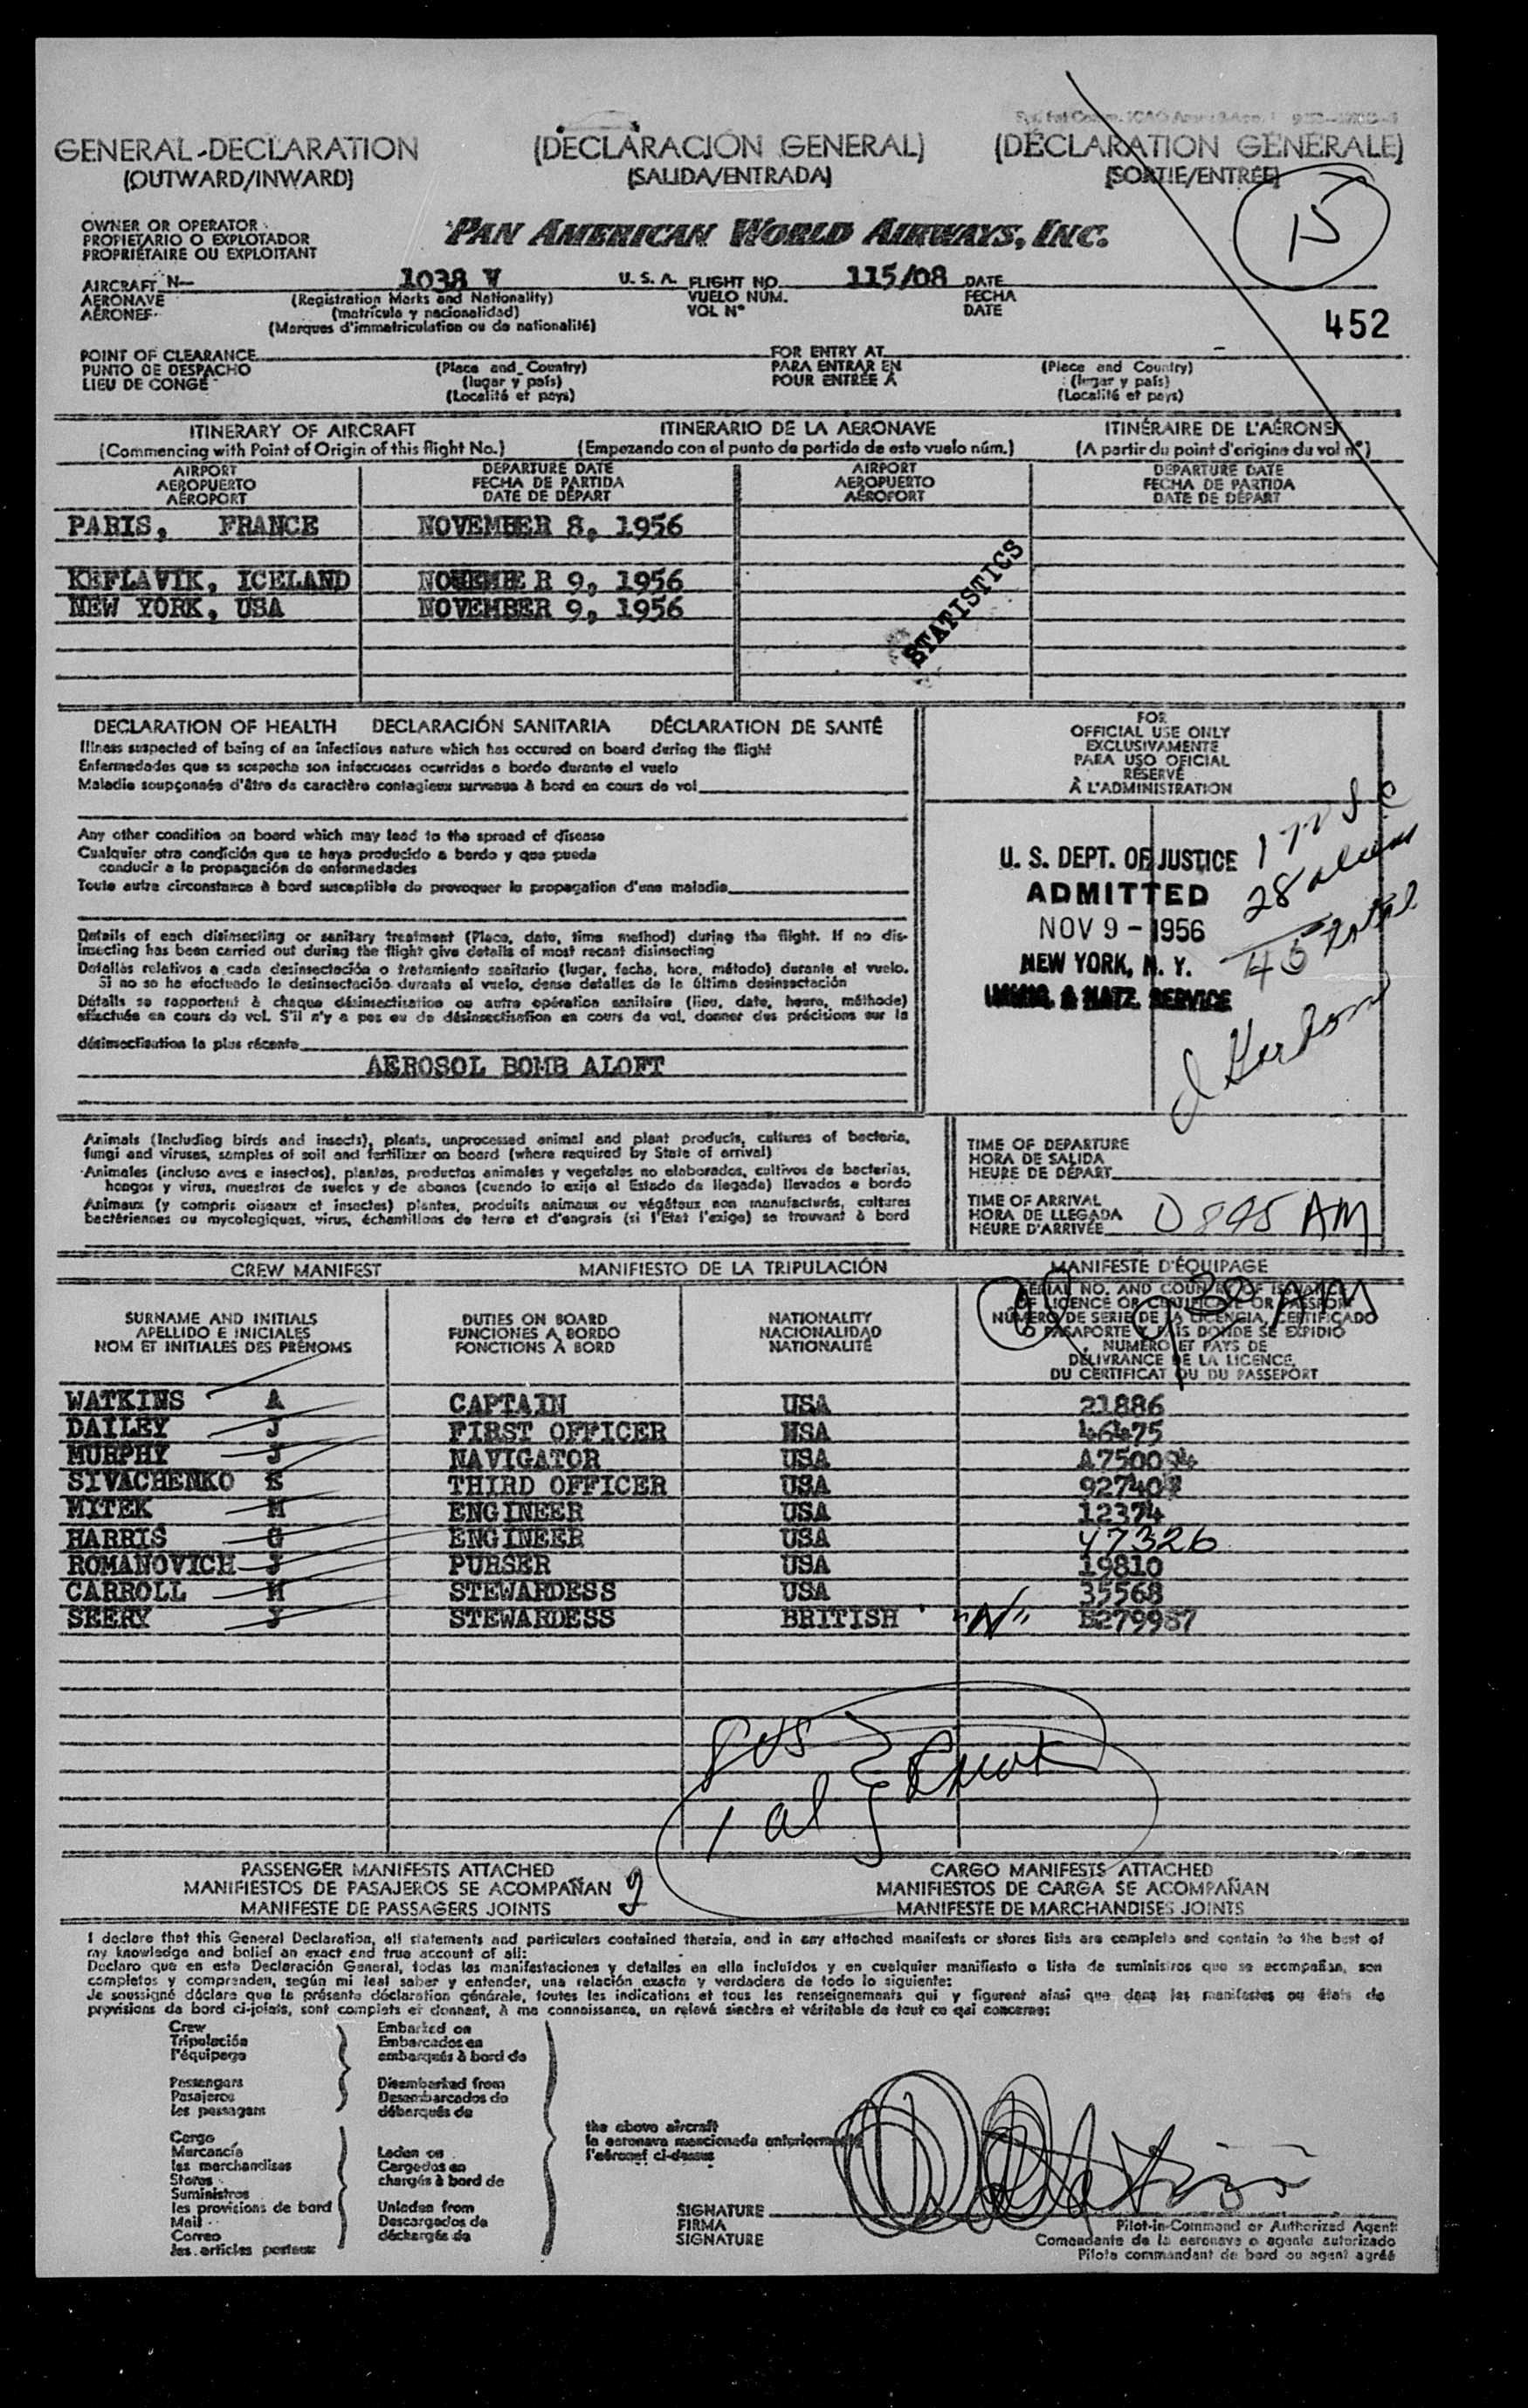 GENERAL-DECLARATION (DECLARACIÓN GENERAL) (DÉCLARATION GÉNÉRALE)
(OUTWARD/INWARD) (SALIDA/ENTRADA) (SORTIE/ENTRÉE)
15
OWNER OR OPERATOR
PROPIETARIO O EXPLOTADOR
PROPRIÉTAIRE OU EXPLOITANT
PAN AMERICAN WORLD AIRWAYS, INC.
AIRCRAFT N— 1038 V U. S. A. FLIGHT NO. 115/08 DATE
AERONAVE (Registration Marks and Nationality) VUELO NÚM. FECHA
AÉRONEF (matrícula y nacionalidad) VOL Nº DATE
(Marques d'immatriculation ou de nationalité)
452
POINT OF CLEARANCE FOR ENTRY AT
PUNTO DE DESPACHO (Place and Country) PARA ENTRAR EN (Place and Country)
LIEU DE CONGÉ (lugar y país) POUR ENTRÉE À (lugar y país)
(Localité et pays) (Localité et pays)
ITINERARY OF AIRCRAFT ITINERARIO DE LA AERONAVE ITINÉRAIRE DE L'AÉRONEF
(Commencing with Point of Origin of this flight No.) (Empezando con el punto de partida de este vuelo núm.) (A partir du point d'origine du vol nº)
AIRPORT DEPARTURE DATE AIRPORT DEPARTURE DATE
AEROPUERTO FECHA DE PARTIDA AEROPUERTO FECHA DE PARTIDA
AÉROPORT DATE DE DÉPART AÉROPORT DATE DE DÉPART
PARIS, FRANCE NOVEMBER 8, 1956
KEFLAVIK, ICELAND NOVEMBER 9, 1956
NEW YORK, USA NOVEMBER 9, 1956
STATISTICS
DECLARATION OF HEALTH DECLARACIÓN SANITARIA DÉCLARATION DE SANTÉ
Illness suspected of being of an infectious nature which has occured on board during the flight
Enfermedades que se sospecha son infecciosas ocurridas a bordo durante el vuelo
Maladie soupçonnée d'être de caractère contagieux survenue à bord en cours de vol
Any other condition on board which may lead to the spread of disease
Cualquier otra condición que se haya producido a bordo y que pueda
conducir a la propagación de enfermedades
Toute autre circonstance à bord susceptible de provoquer la propagation d'une maladie
Details of each disinsecting or sanitary treatment (Place, date, time method) during the flight. If no dis-
insecting has been carried out during the flight give details of most recent disinsecting
Detalles relativos a cada desinsectación o tratamiento sanitario (lugar, fecha, hora, método) durante el vuelo.
Si no se ha efectuado la desinsectación durante el vuelo, dense detalles de la última desinsectación
Détails se rapportent à chaque désinsectisation ou autre opération sanitaire (lieu, date, heure, méthode)
effectuée en cours de vol. S'il n'y a pas eu de désinsectisation en cours de vol, donner des précisions sur la
désinsectisation la plus récente
AEROSOL BOMB ALOFT
FOR
OFFICIAL USE ONLY
EXCLUSIVAMENTE
PARA USO OFICIAL
RÉSERVÉ
À L'ADMINISTRATION
U. S. DEPT. OF JUSTICE
ADMITTED
NOV 9 - 1956
NEW YORK, N. Y.
IMMIG. & NATZ. SERVICE
28 aliens
45 total
Animals (Including birds and insects), plants, unprocessed animal and plant products, cultures of bacteria,
fungi and viruses, samples of soil and fertilizer on board (where required by State of arrival)
Animales (incluso aves e insectos), plantas, productos animales y vegetales no elaborados, cultivos de bacterias,
hongos y virus, muestras de suelos y de abonos (cuando lo exija el Estado de llegada) llevados a bordo
Animaux (y compris oiseaux et insectes) plantes, produits animaux ou végétaux non manufacturés, cultures
bactériennes ou mycologiques, virus, échantillons de terre et d'engrais (si l'Etat l'exige) se trouvant à bord
TIME OF DEPARTURE
HORA DE SALIDA
HEURE DE DÉPART
TIME OF ARRIVAL
HORA DE LLEGADA
HEURE D'ARRIVÉE 0845 AM
CREW MANIFEST MANIFIESTO DE LA TRIPULACIÓN MANIFESTE D'ÉQUIPAGE
SURNAME AND INITIALS DUTIES ON BOARD NATIONALITY
APELLIDO E INICIALES FUNCIONES A BORDO NACIONALIDAD
NOM ET INITIALES DES PRÉNOMS FONCTIONS À BORD NATIONALITÉ
SERIAL NO. AND COUNTRY OF ISSUANCE
OF LICENCE OR CERTIFICATE OR PASSPORT
NÚMERO DE SERIE DE LA LICENCIA, CERTIFICADO
O PASAPORTE Y PAÍS DONDE SE EXPIDIÓ
NUMÉRO ET PAYS DE
DÉLIVRANCE DE LA LICENCE,
DU CERTIFICAT OU DU PASSEPORT
WATKINS A CAPTAIN USA 21886
DAILEY J FIRST OFFICER USA 46475
MURPHY J NAVIGATOR USA A750094
SIVACHENKO E THIRD OFFICER USA 927407
MITEK M ENGINEER USA 12374
HARRIS G ENGINEER USA 47326
ROMANOVICH J PURSER USA 19810
CARROLL M STEWARDESS USA 35568
SEERY J STEWARDESS BRITISH "N" B279987
8 US
1 al
PASSENGER MANIFESTS ATTACHED CARGO MANIFESTS ATTACHED
MANIFIESTOS DE PASAJEROS SE ACOMPAÑAN 9 MANIFIESTOS DE CARGA SE ACOMPAÑAN
MANIFESTE DE PASSAGERS JOINTS MANIFESTE DE MARCHANDISES JOINTS
I declare that this General Declaration, all statements and particulars contained therein, and in any attached manifests or stores lists are complete and contain to the best of
my knowledge and belief an exact and true account of all:
Declaro que en esta Declaración General, todas las manifestaciones y detalles en ella incluídos y en cualquier manifiesto o lista de suministros que se acompañan, son
completos y comprenden, según mi leal saber y entender, una relación exacta y verdadera de todo lo siguiente:
Je soussigné déclare que la présente déclaration générale, toutes les indications et tous les renseignements qui y figurent ainsi que dans les manifestes ou états de
provisions de bord ci-joints, sont complets et donnent, à ma connaissance, un relevé sincère et véritable de tout ce qui concerne:
Crew Embarked on
Tripulación Embarcados en
l'équipage embarqués à bord de
Passengers Disembarked from
Pasajeros Desembarcados de
les passagers débarqués de
the above aircraft
la aeronave mencionada anteriormente
l'aéronef ci-dessus
Cargo
Mercancía Laden on
les marchandises Cargados en
Stores chargés à bord de
Suministros
les provisions de bord Unladen from
Mail Descargados de
Correo déchargés de
les articles postaux
SIGNATURE
FIRMA
SIGNATURE
Pilot-in-Command or Authorized Agent
Comandante de la aeronave o agente autorizado
Pilote commandant de bord ou agent agréé